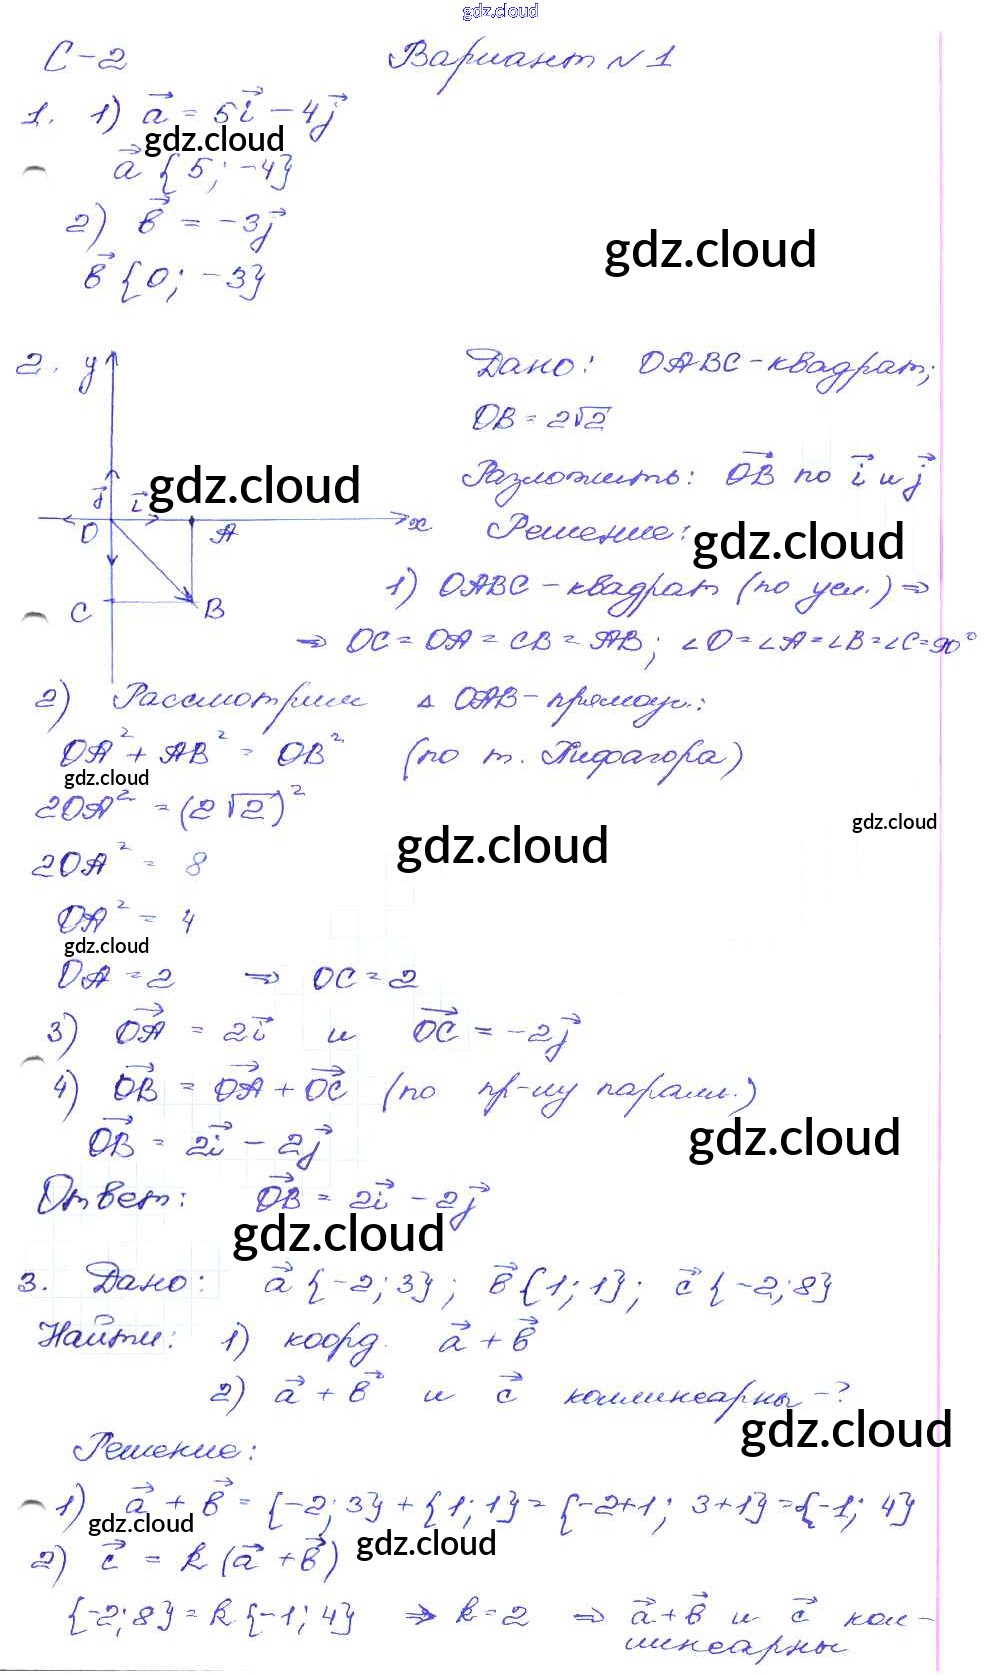 gdz.cloud
С-2 Вариант №1
1. 1) a⃗ = 5i⃗ - 4j⃗
gdz.cloud
a⃗ {5; -4}
2) в⃗ = -3j⃗
gdz.cloud
в⃗ {0; -3}
2. y Дано: OABC-квадрат;
OB = 2√2
gdz.cloud
Разложить: OB⃗ по i⃗ и j⃗
j⃗ i⃗
O A x Решение:
gdz.cloud
1) OABC-квадрат (по усл.) ⇒
C B
⇒ OC = OA = CB = AB; ∠O=∠A=∠B=∠C=90°
2) Рассмотрим △ OAB-прямоуг.:
OA² + AB² = OB² (по т. Пифагора)
gdz.cloud
2OA² = (2√2)²
gdz.cloud
gdz.cloud
2OA² = 8
OA² = 4
gdz.cloud
OA = 2 ⇒ OC = 2
3) OA⃗ = 2i⃗ и OC⃗ = -2j⃗
4) OB⃗ = OA⃗ + OC⃗ (по пр-лу паралл.)
gdz.cloud
OB⃗ = 2i⃗ - 2j⃗
Ответ: OB⃗ = 2i⃗ - 2j⃗
gdz.cloud
3. Дано: a⃗ {-2; 3}; в⃗ {1; 1}; c⃗ {-2; 8}
Найти: 1) коорд. a⃗ + в⃗
2) a⃗ + в⃗ и c⃗ коллинеарны -?
gdz.cloud
Решение:
1) a⃗ + в⃗ = {-2; 3} + {1; 1} = {-2+1; 3+1} = {-1; 4}
gdz.cloud
gdz.cloud
2) c⃗ = k (a⃗ + в⃗)
{-2; 8} = k {-1; 4} ⇒ k = 2 ⇒ a⃗ + в⃗ и c⃗ кол-
линеарны